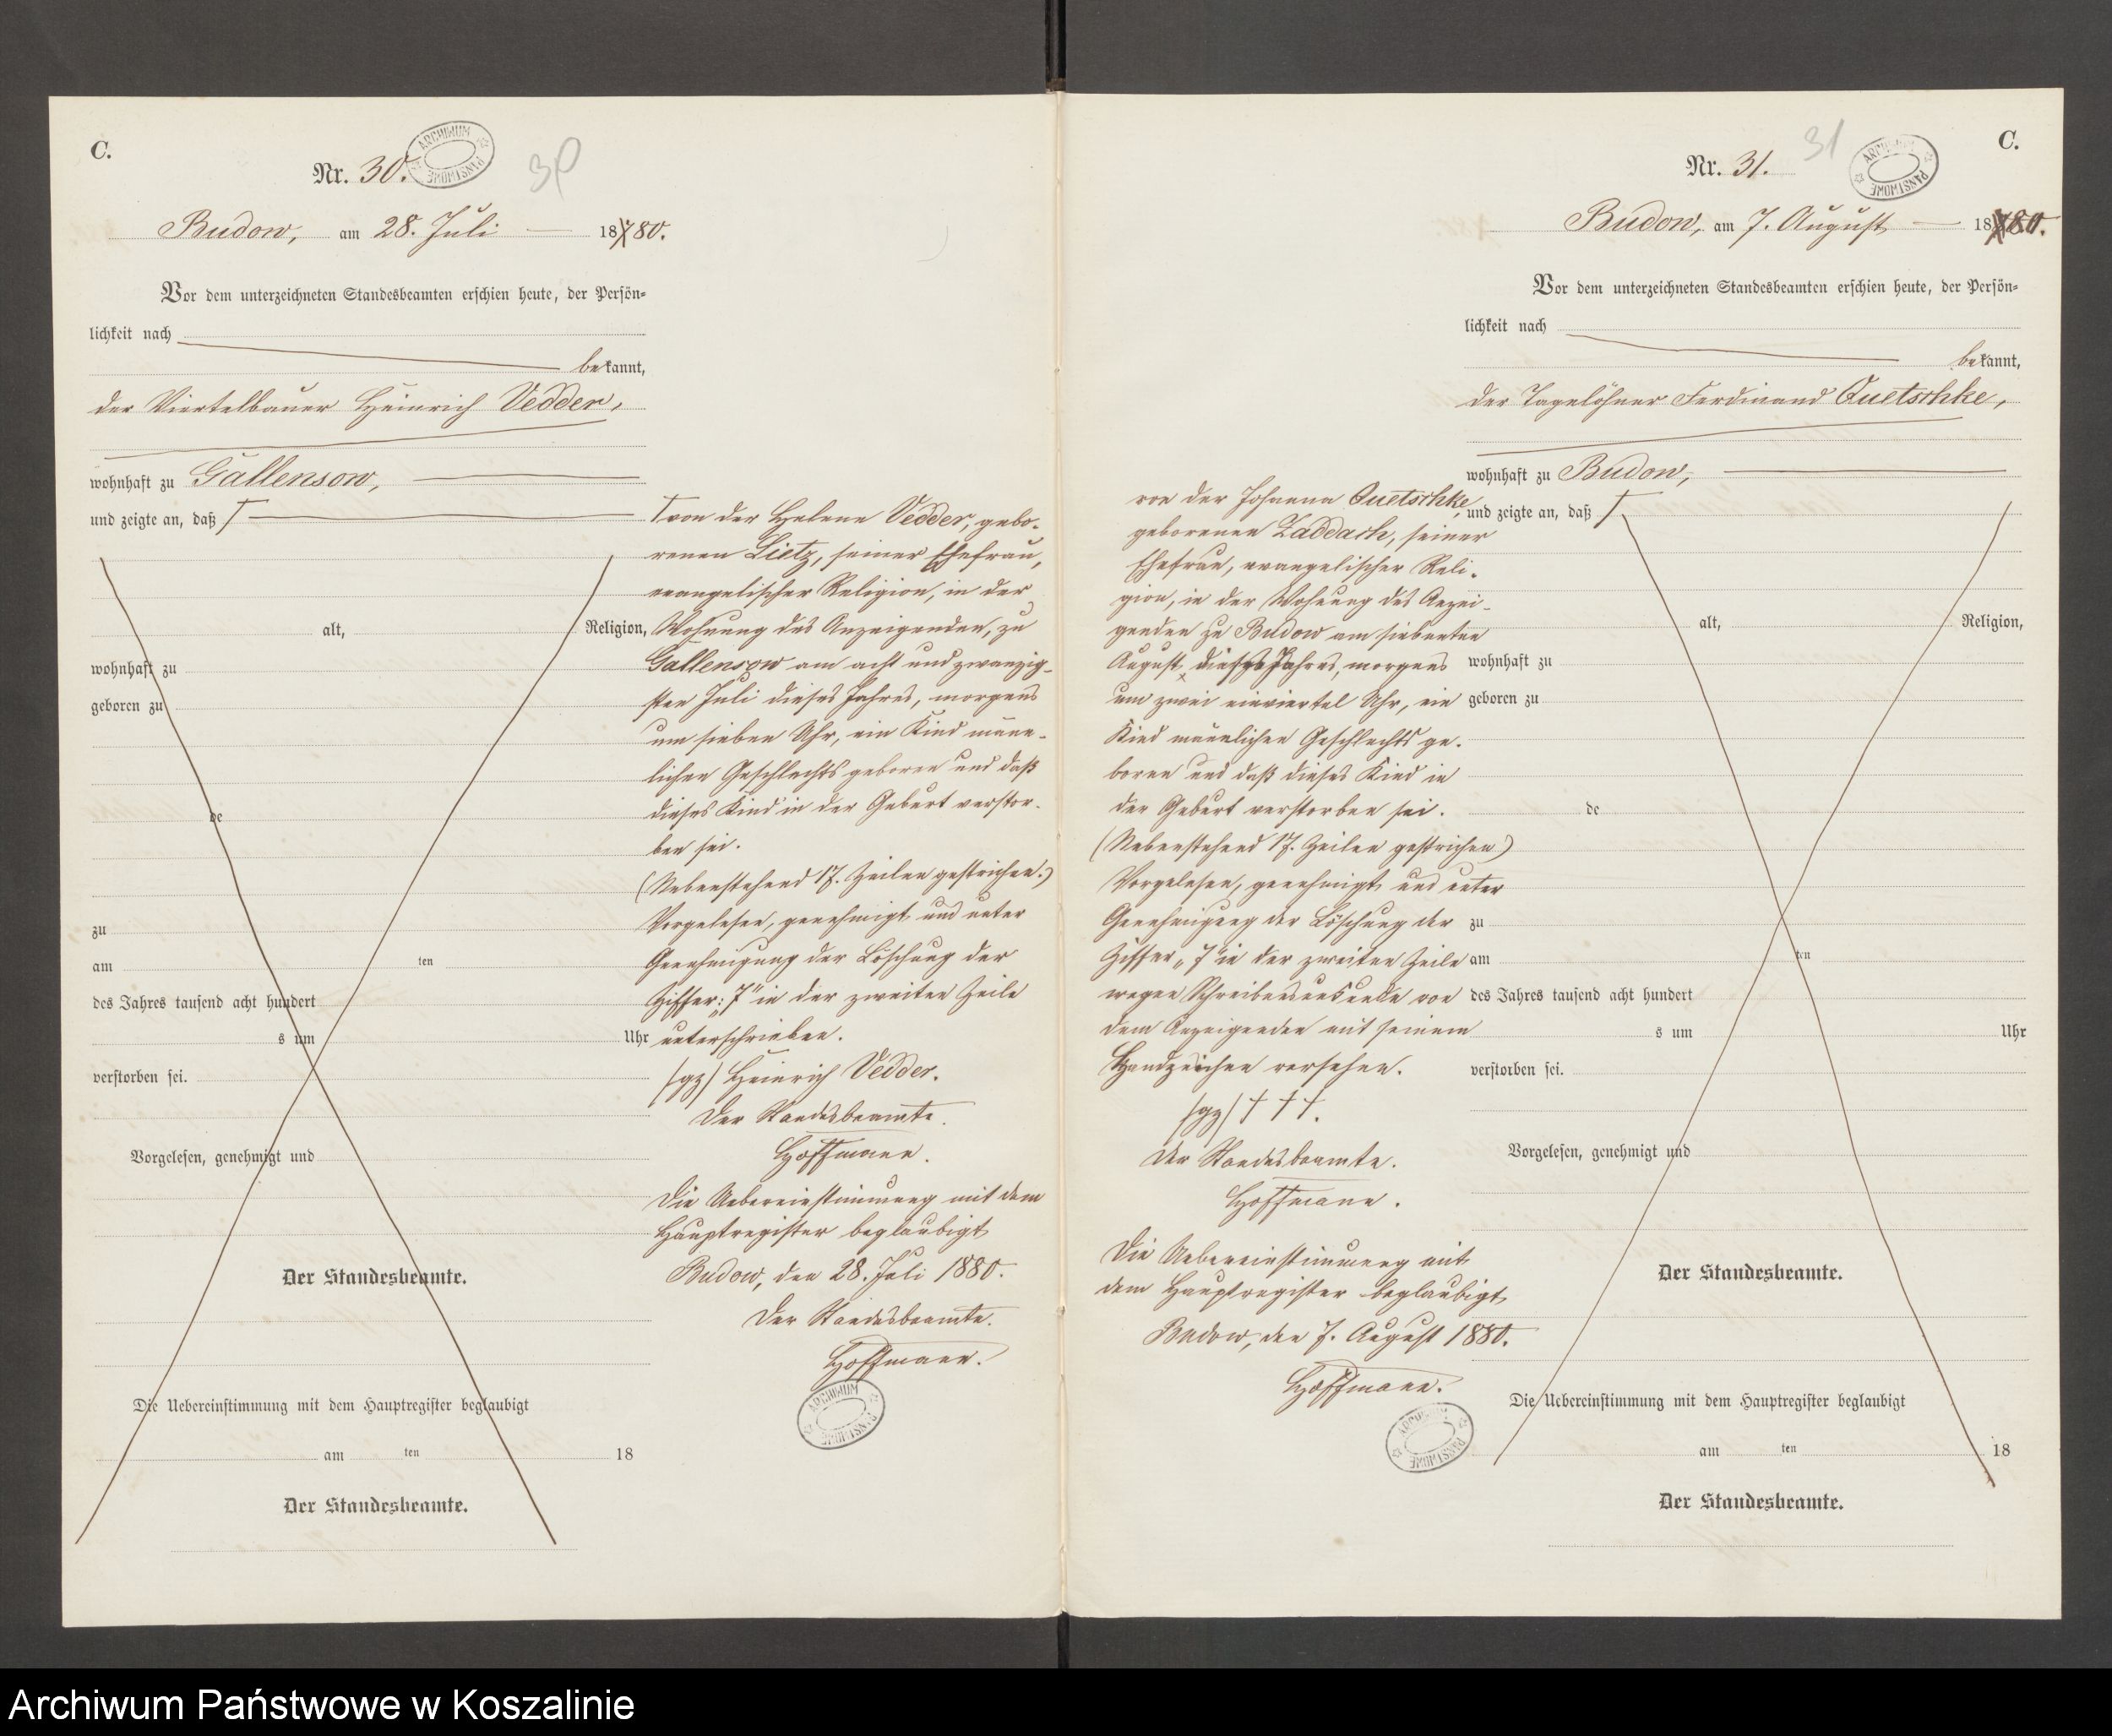 C.
Nr. 30.
ARCHIWUM PAŃSTWOWE
30
Budow, am 28. Juli 18780.
Vor dem unterzeichneten Standesbeamten erschien heute, der Persön-
lichkeit nach
bekannt,
der Viertelbauer Heinrich Vedder,
wohnhaft zu Gallensow,
und zeigte an, daß
alt, Religion,
wohnhaft zu
geboren zu
de
zu
am ten
des Jahres tausend acht hundert
s um Uhr
verstorben sei.
Vorgelesen, genehmigt und
Der Standesbeamte.
Die Uebereinstimmung mit dem Hauptregister beglaubigt
am ten 18
Der Standesbeamte.
von der Helene Vedder, gebo-
renen Lietz, seiner Ehefrau,
evangelischer Religion, in der
Wohnung des Anzeigenden, zu
Gallensow am acht und zwanzig-
sten Juli dieses Jahres, morgens
um sieben Uhr, ein Kind männ-
lichen Geschlechts geboren und daß
dieses Kind in der Geburt verstor-
ben sei.
(Nebenstehend 17. Zeilen gestrichen.)
Vorgelesen, genehmigt und unter
Genehmigung der Löschung der
Ziffer: „7" in der zweiten Zeile
unterschrieben.
/gz/ Heinrich Vedder.
Der Standesbeamte.
Hoffmann.
Die Uebereinstimmung mit dem
Hauptregister beglaubigt
Budow, den 28. Juli 1880.
Der Standesbeamte.
Hoffmann.
ARCHIWUM PAŃSTWOWE
C.
Nr. 31.
31
ARCHIWUM PAŃSTWOWE
Budow, am 7. August 18780.
Vor dem unterzeichneten Standesbeamten erschien heute, der Persön-
lichkeit nach
bekannt,
der Tagelöhner Ferdinand Quetschke,
wohnhaft zu Budow,
und zeigte an, daß
von der Johanna Quetschke,
geborenen Zaddach, seiner
Ehefrau, evangelischer Reli-
gion, in der Wohnung des Anzei-
genden zu Budow am siebenten
August dieses Jahres, morgens
um zwei einviertel Uhr, ein
Kind männlichen Geschlechts ge-
boren und daß dieses Kind in
der Geburt verstorben sei.
(Nebenstehend 17. Zeilen gestrichen)
Vorgelesen, genehmigt und unter
Genehmigung der Löschung der
Ziffer „7" in der zweiten Zeile
wegen Schreibensunkunde von
dem Anzeigenden mit seinem
Handzeichen versehen.
/gz/ † † †.
Der Standesbeamte.
Hoffmann.
Die Uebereinstimmung mit
dem Hauptregister beglaubigt
Budow, den 7. August 1880.
Hoffmann.
ARCHIWUM PAŃSTWOWE
alt, Religion,
wohnhaft zu
geboren zu
de
zu
am ten
des Jahres tausend acht hundert
s um Uhr
verstorben sei.
Vorgelesen, genehmigt und
Der Standesbeamte.
Die Uebereinstimmung mit dem Hauptregister beglaubigt
am ten 18
Der Standesbeamte.
Archiwum Państwowe w Koszalinie